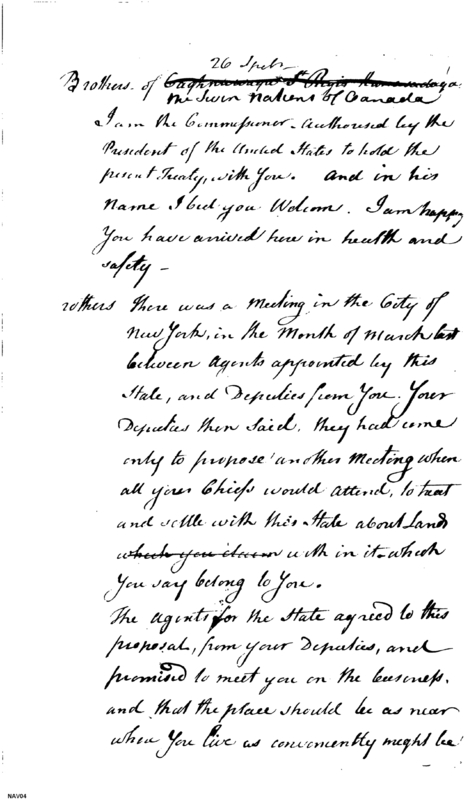 26 Septr
Brothers. of ~~Caghnawaga St. Regis~~
the Seven Nations of Canada
I am the Commissioner authorised by the
President of the United States to hold the
present Treaty, with You. And in his
Name I bid you Welcom. I am happy
You have arrived here in health and
safety —
rothers There was a Meeting in the City of
New York, in the Month of March last
between Agents appointed by this
State, and Deputies from You. Your
Deputies then said, they had come
only to propose another Meeting when
all your Chiefs would attend, to treat
and settle with this State about Land
~~which you claim~~ with in it which
You say belong to You.
The Agents for the State agreed to this
proposal, from your Deputies, and
promised to meet you on the business.
and that the place should be as near
where You live as conveniently might be
NAV04